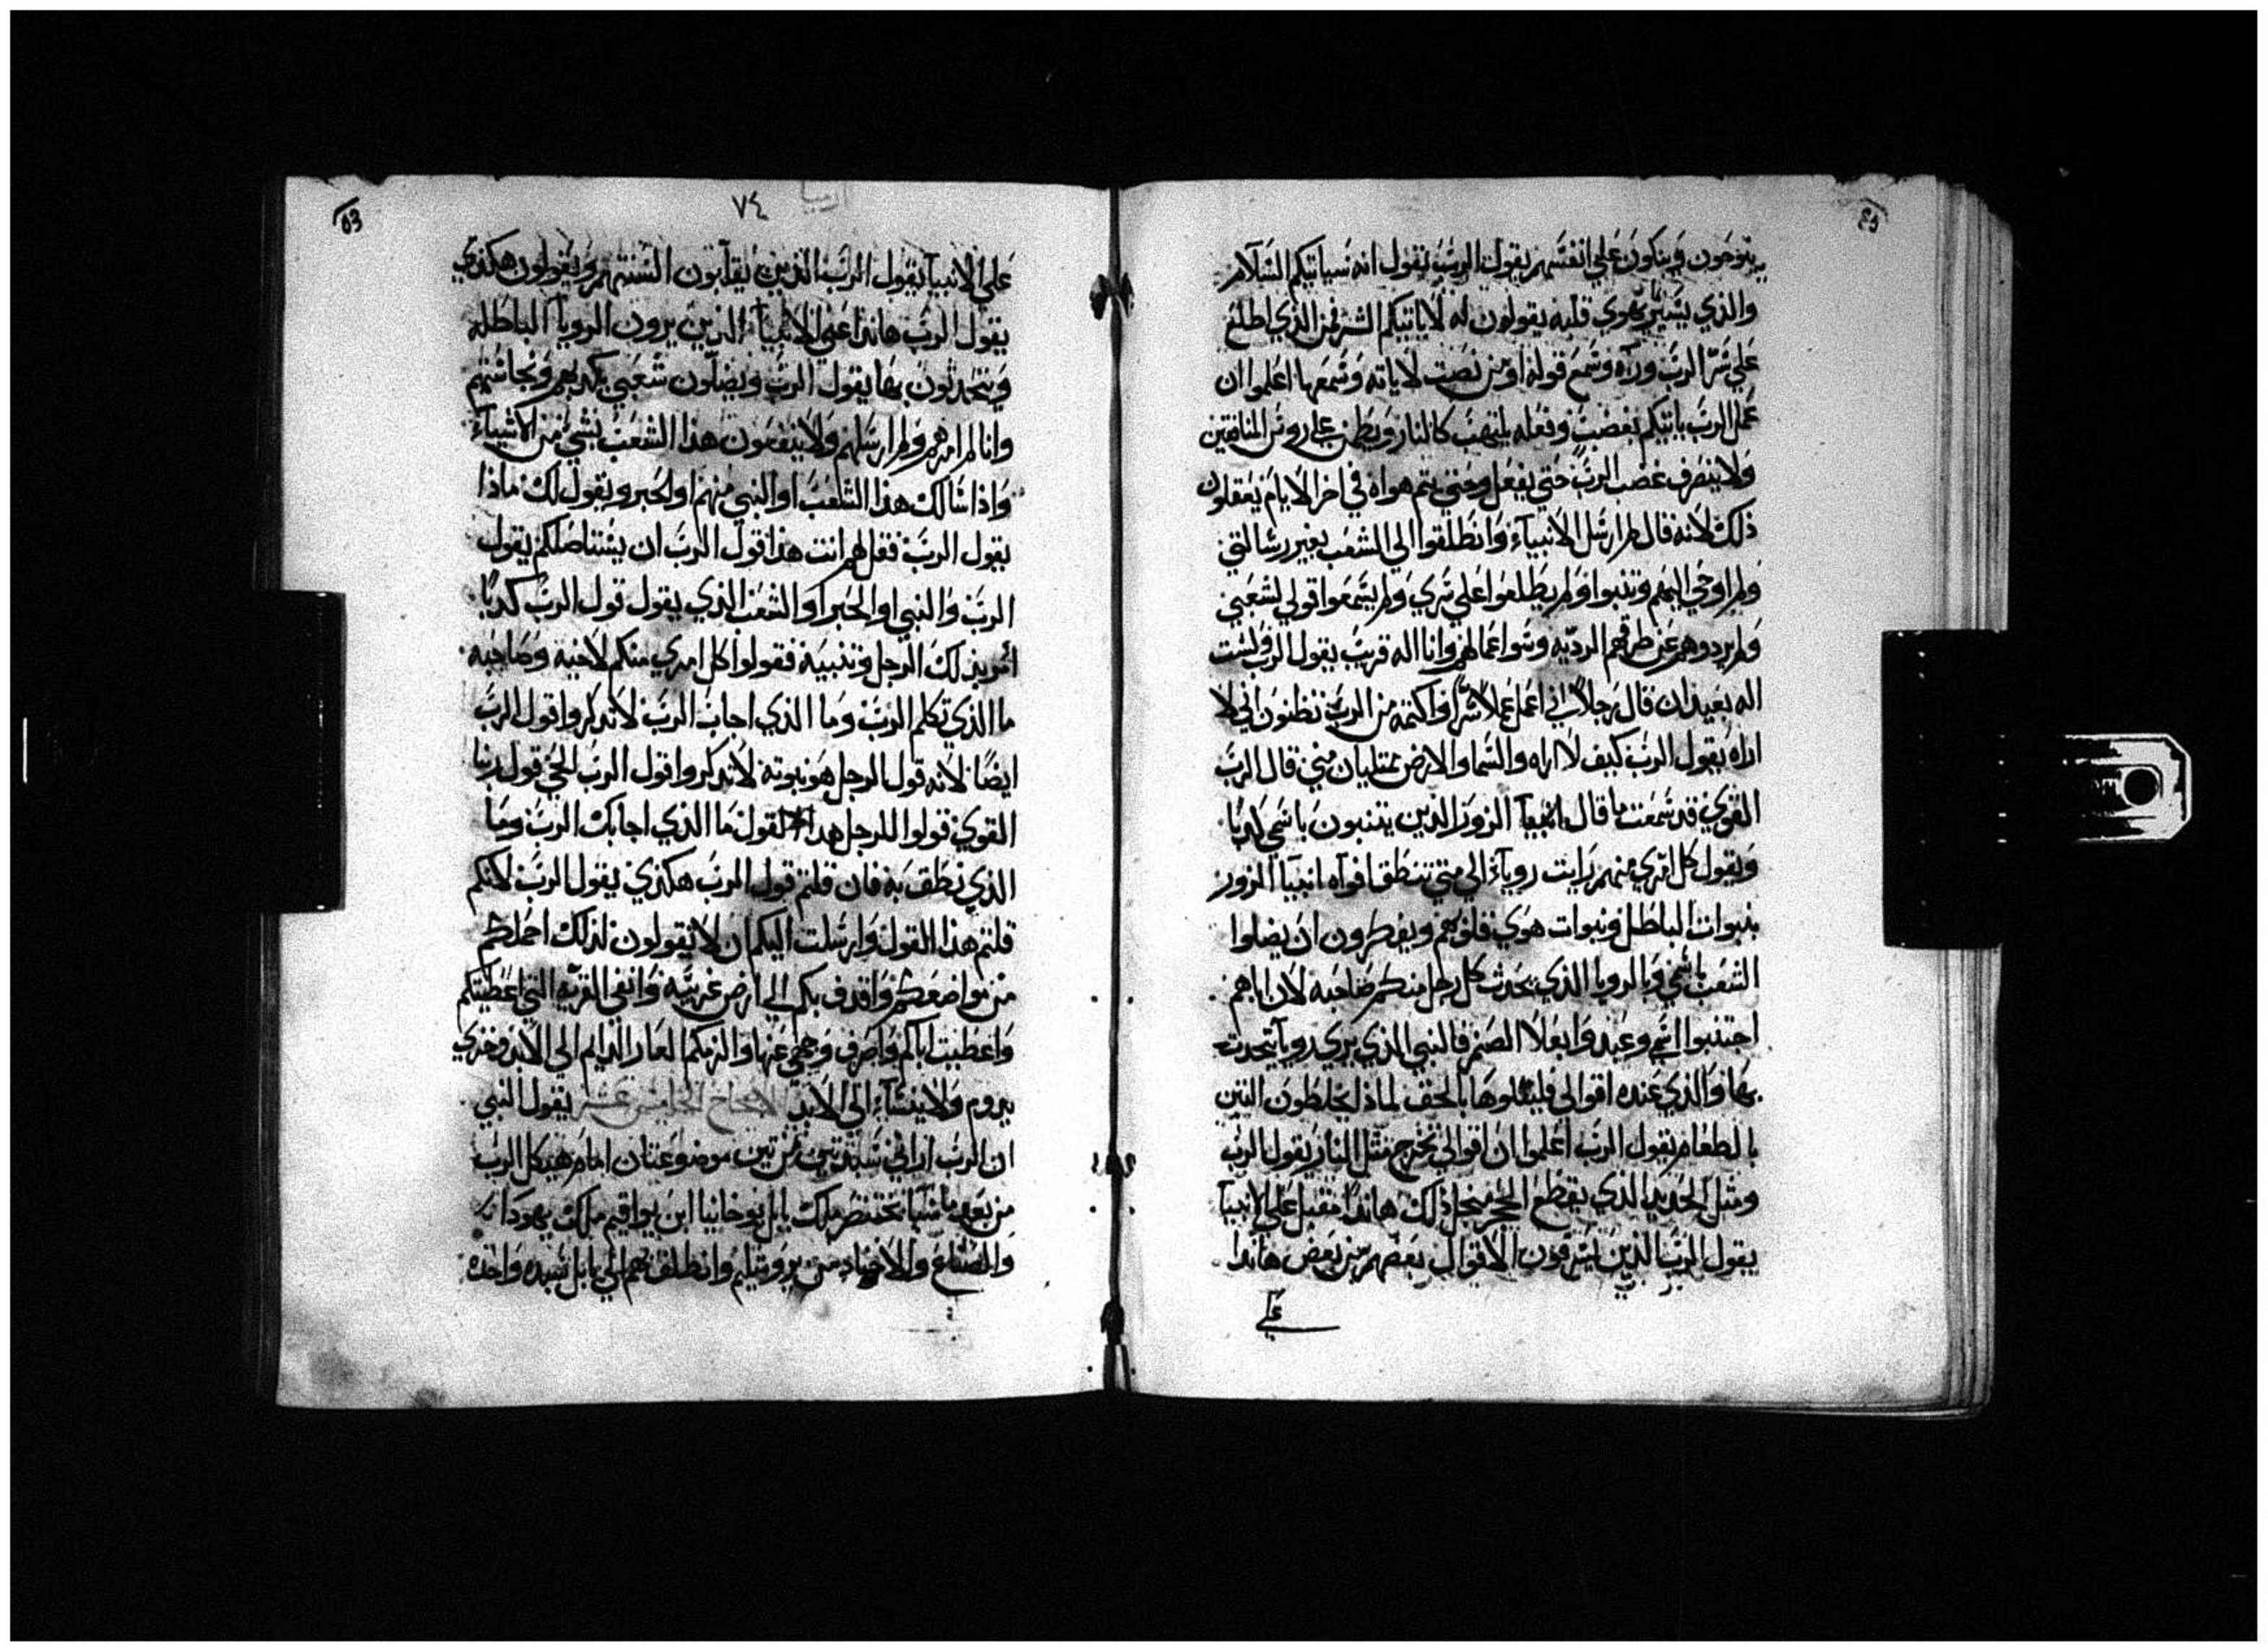 يتوجون ويتكون علي انفسهم يقول الرب يقول انه سياتيكم السلام
والذي يسير بهوي قلبه يقولون له لا ياتيكم الشر فمن الذي اطلع
علي سر الرب وراه وسمع قوله او من نصت لاياته وسمعها اعلموا ان
عمل الرب ياتيكم بغضب وفعله يلتهب كالنار ويطمن علي روس المنافقين
ولا ينصرف غضب الرب حتي يفعل وحتي يتم هواه في اخر الايام يعقلون
ذلك لانه قال لم ارسل الانبياء وانطلقوا الي الشعب بغير رسالتي
ولم اوحي اليهم وتنبوا ولم يطلعوا علي سري ولم يسمعوا قولي لشعبي
ولم يردوهم عن طرقهم الرديه وسو اعمالهم وانا اله قريب يقول الرب ولست
اله بعيد ان قال رجلا اني اعمل عملا سرا واكتمه من الرب تظنون اني لا
اراه يقول الرب كيف لا اراه والسما والارض ممتليان مني قال الرب
القوي قد سمعت ما قال انبيا الزور الذين يتنبون باسمي كدبا
ويقول كل امري منهم رايت روياء الي متي تنطق افواه انبيا الزور
بنبوات الباطل ونبوات هوي قلوبهم ويفكرون ان يضلوا
الشعب باسمي وبالرويا الذي يحدث كل رجل منكم صاحبه لان اباهم
اجتنبوا اسمي وعبدوا بعلا الصنم فالنبي الذي يري رويا يتحدث
بها والذي عنده اقوالي فليتلوها بالحق لماذا يخلطون التبن
بالطعام يقول الرب اعلموا ان اقوالي تخرج مثل النار يقول الرب
ومثل الحديد الذي يقطع الحجر منجل ذلك هانذا مقبل علي الانبيا
يقول الرب الذين يسرقون الاقوال بعضهم من بعض هاندا
علي
٧٤
علي الانبيا يقول الرب الذين يقلبون السنتهم ويقولون هكذي
يقول الرب هاندا علي الانبيا الذين يرون الرويا الباطله
ويتحدثون بها يقول الرب ويضلون شعبي بكدبهم ونجاستهم
وانا لم امرهم ولم ارسلهم ولا ينفعون هذا الشعب بشي من الاشياء
واذا سالك هذا الشعب او النبي منهم او الحبر ويقول لك ماذا
يقول الرب فقل لهم انت هذا قول الرب ان يستاصلكم يقول
الرب والنبي او الحبر او الشعب الذي يقول قول الرب كدبا
امر بذلك الرجل وتنبيه فقولوا كل امري منكم لاخيه وصاحبه
ما الذي تكلم الرب وما الذي اجاب الرب لا تدكروا قول الرب
ايضا لانه قول الرجل هو نبوته لا تدكروا قول الرب الحي قول ربنا
القوي قولوا للرجل هدا القول ما الذي اجابك الرب وما
الذي نطق به فان قلتم قول الرب هكذي يقول الرب لانكم
قلتم هذا القول وارسلت اليكم ان لا تقولون لذلك احملكم
من مواضعكم واقدف بكم الي ارض غريبه وانفي القريه التي اعطيتكم
واعطيت اباكم واصرف وجهي عنها والزمكم العار الدايم الي الابد وخزي
يدوم ولا ينساء الي الابد الاصحاح الخامس عشر يقول النبي
ان الرب اراني سبدتين من تين موضوعتان امام هيكل الرب
من بعد ما سبا بختنصر ملك بابل يوخانيا ابن يواقيم ملك يهودا
والصناع والاجناد من يروشليم وانطلق بهم الي بابل سبده واحده